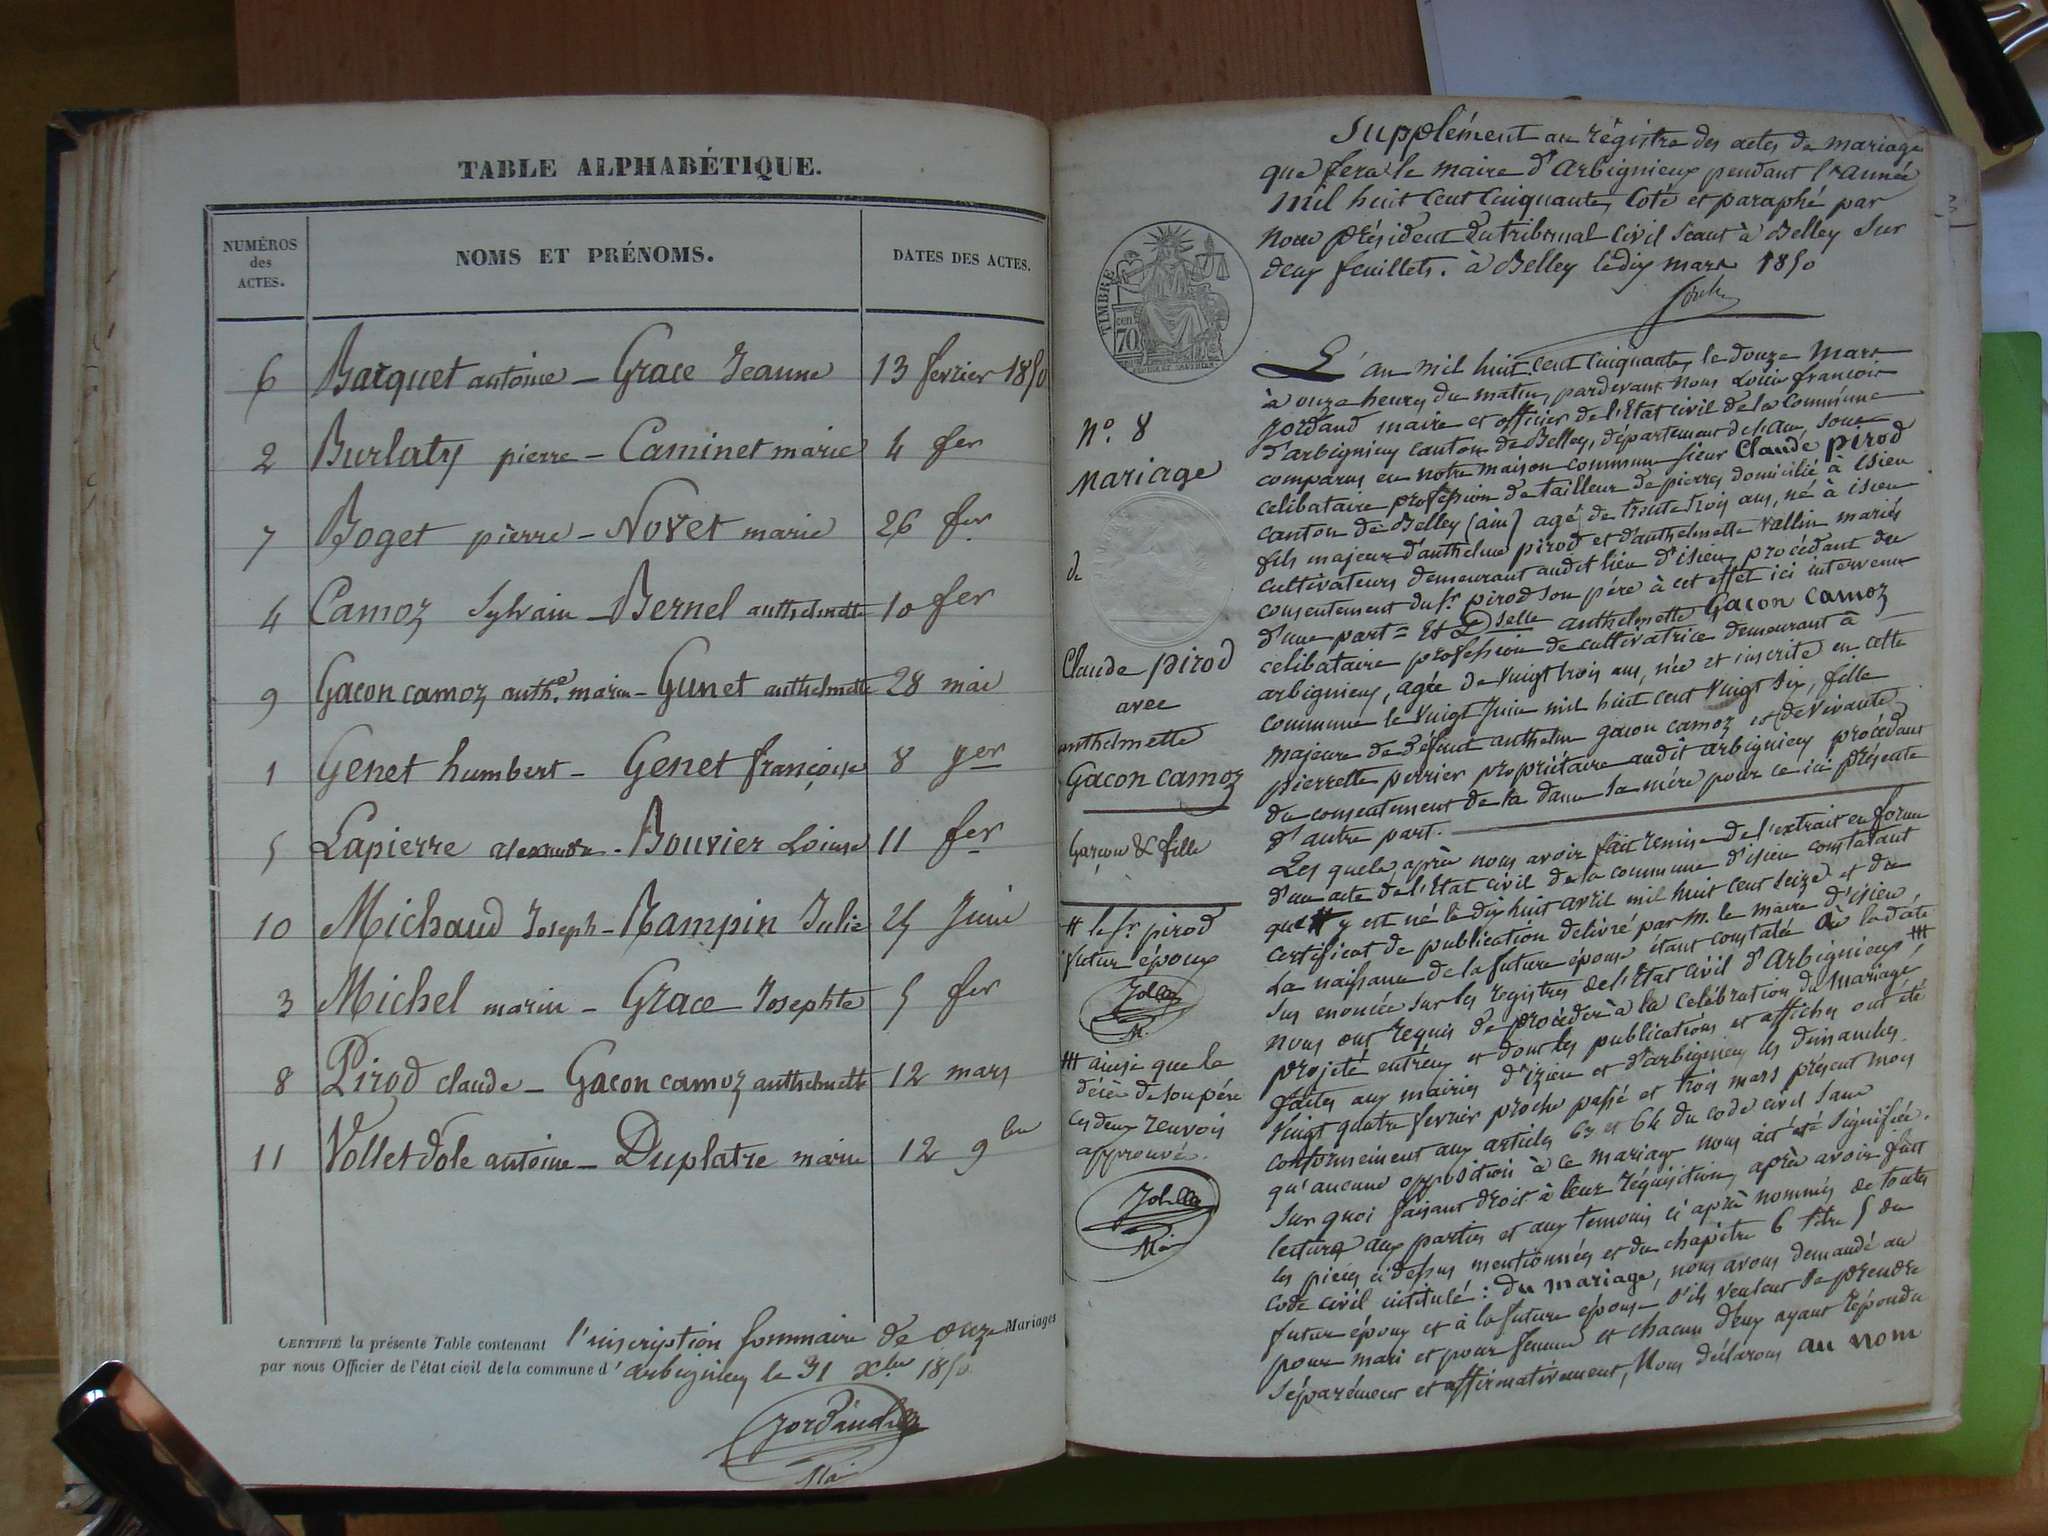 TABLE ALPHABÉTIQUE.
NUMÉROS des ACTES.
NOMS ET PRÉNOMS.
DATES DES ACTES.
6 Barquet antoine - Grace Jeanne 13 fevrier 1850
2 Burlaty pierre - Caminet marie 4 fer
7 Boget pierre - Novet marie 26 fer
4 Camoz Sylvain - Bernel anthelmette 10 fer
9 Gacon camoz anthe. marin - Gunet anthelmette 28 mai
1 Genet humbert - Genet françoise 8 yer
5 Lapierre alexandre - Bouvier Loiuse 11 fer
10 Michaud Joseph - Rampin Julie 25 Juin
3 Michel marin - Grace Josephte 5 fer
8 Pirod claude - Gacon camoz anthelmette 12 mars
11 Vollet dole antoine - Duplatre marie 12 9bre
CERTIFIÉ la présente Table contenant l'inscription sommaire de onze Mariages
par nous Officier de l'état civil de la commune d'arbignieu le 31 Xbre 1850.
Jordaud
Mai
Supplément au régistre des actes de mariage
que fera le maire d'Arbignieux pendant l'année
mil huit cent cinquante, coté et paraphé par
Nous président du tribunal civil séant à Belley sur
deux feuillets. à Belley le dix mars 1850
TIMBRE
70
cen
N°. 8
Mariage
de
Claude pirod
avec
anthelmette
Gacon camoz
Garçon & fille
# le sr. pirod
futur époux
M.
### ainsi que le
décès de son père
les deux renvois
approuvé.
Mai
L'an mil huit cent cinquante, le douze Mars
à onze heures du matin, pardevant Nous Louis françois
Jordaud maire et officier de l'Etat civil de la commune
d'arbignieu canton de Belley, département de l'ain, sont
comparus en notre maison commune sieur Claude pirod
celibataire profession de tailleur de pierres domicilié à isieu
canton de Belley (ain) agé de trente trois ans, né à isieu
fils majeur d'anthelme pirod et d'anthelmette Vallin mariés
cultivateurs demeurant audit lieu d'isieu, procédant du
consentement du sr. pirod son père à cet effet ici intervenu
d'une part = Et Dselle anthelmette Gacon camoz
celibataire profession de cultivatrice demeurant à
arbignieu, agée de Vingt trois ans, née et inscrite en cette
commune le Vingt Juin mil huit cent Vingt six, fille
majeure de défunt anthelme gacon camoz et de vivante
pierrette perrier propriétaire audit arbignieu procédant
du consentement de la dame sa mère pour ce ici présente
d'autre part.
Les quels, après nous avoir fait remise de l'extrait en forme
d'un acte de l'Etat civil de la commune d'isieu constatant
que # y est né le dix huit avril mil huit cent seize et du
certificat de publication delivré par m. le maire d'isieu,
La naissance de la future épouse étant constatée à la date
sus enoncée sur les registres de l'Etat civil d'Arbignieux ###,
nous ont requis de procéder à la celébration du mariage
projeté entr'eux et dont les publications et affiches ont été
faites aux mairies d'izieu et d'arbignieu les dimanches
Vingt quatre fevrier proche passé et trois mars présent mois
conformément aux articles 63 et 64 du code civil sans
qu'aucune opposition à ce mariage nous ait été signifiée.
Sur quoi faisant droit à leur réquisition, après avoir fait
lecture aux parties et aux temoins ci après nommés de toutes
les pièces ci dessus mentionnées et du chapitre 6 titre 5 du
code civil intitulé : du mariage, nous avons demandé au
futur époux et à la future épouse s'ils veulent se prendre
pour mari et pour femme et chacun d'eux ayant répondu
séparément et affirmativement, Nous déclarons au nom